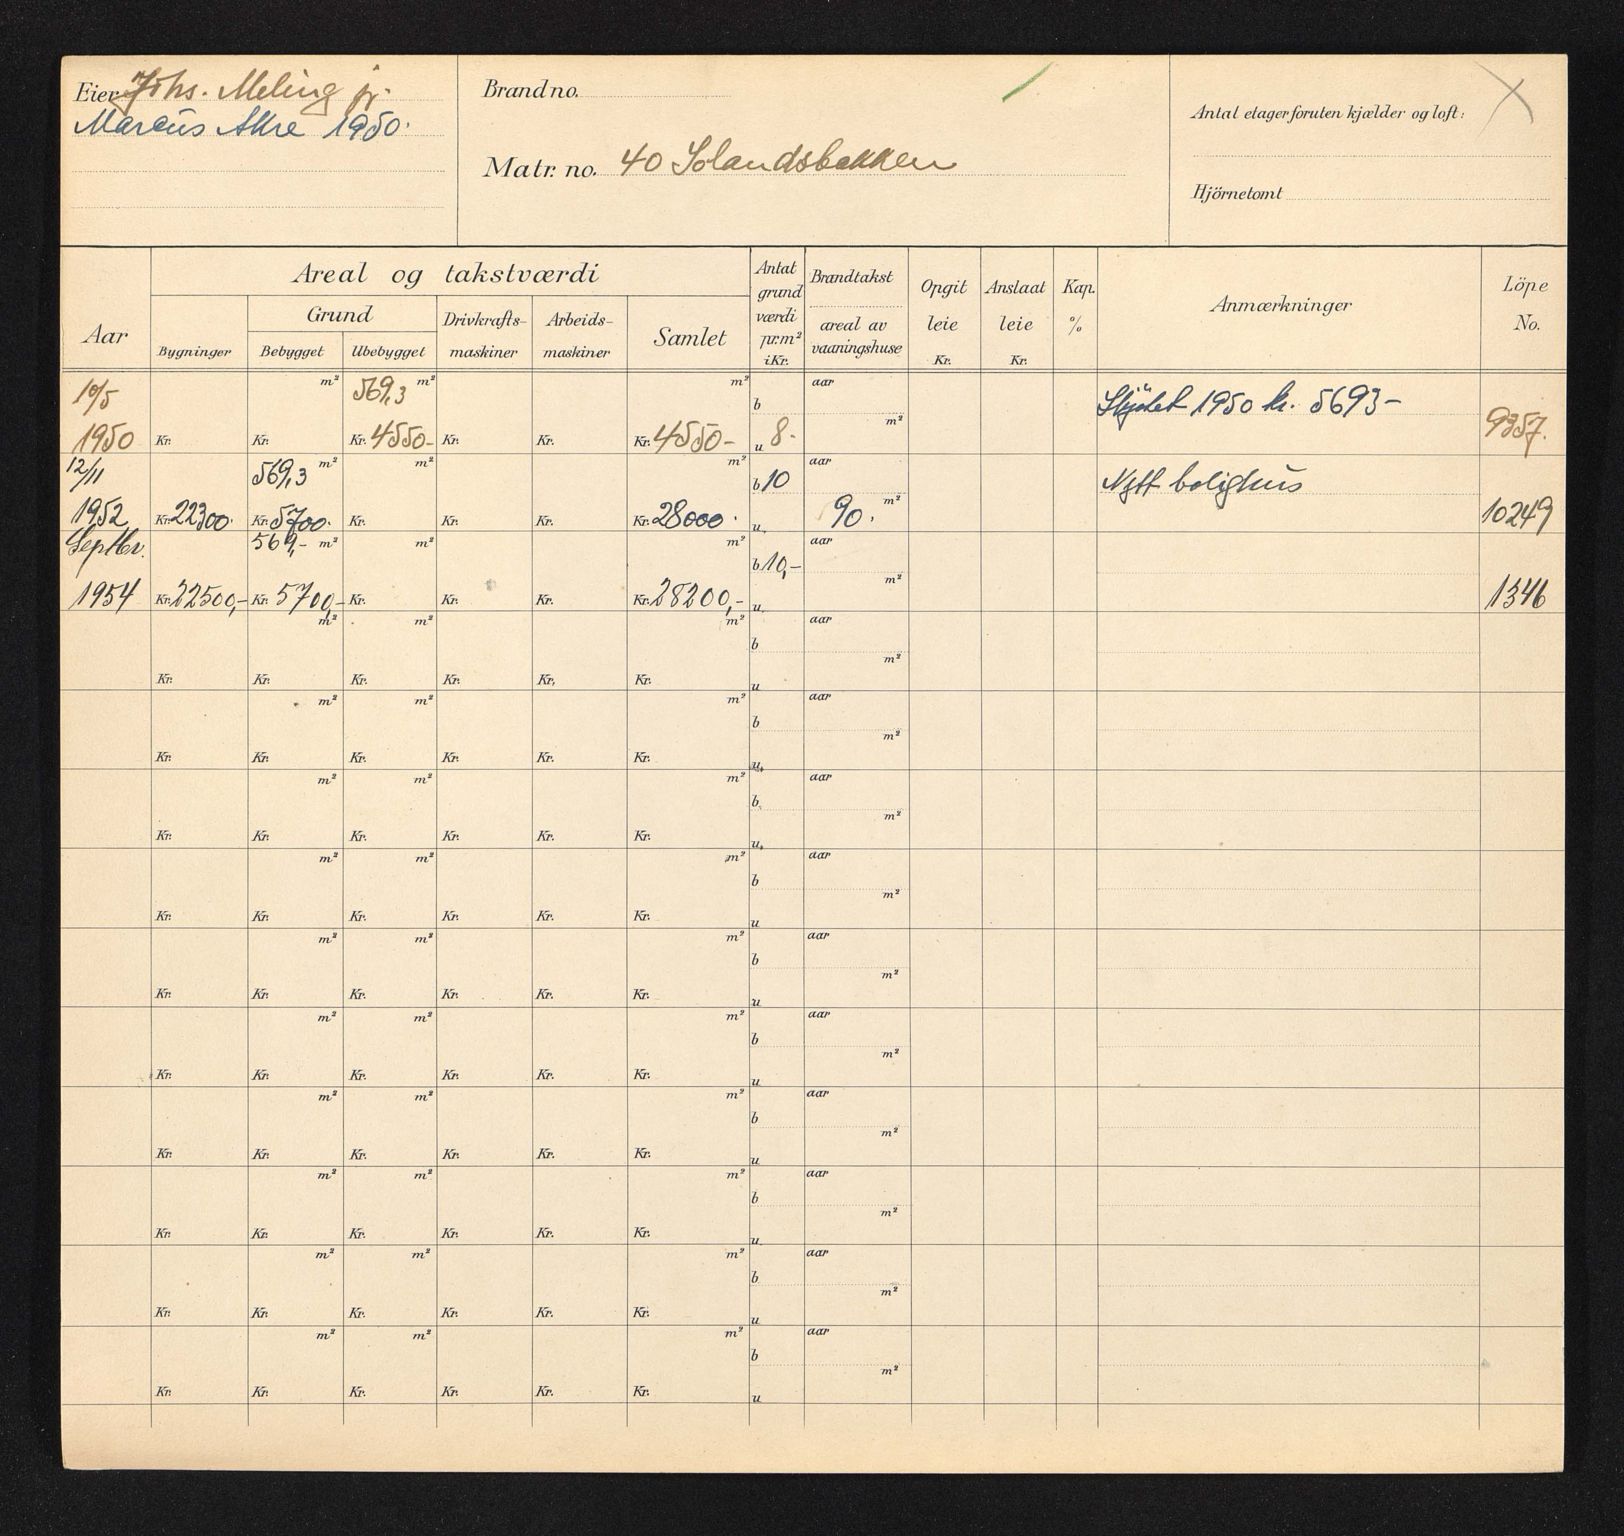 Eier Johs. Meling jr.
Marcus Akre 1950.
Brandno.
Matr. no. 40 Solandsbakken
Antal etager foruten kjælder og loft:
Hjörnetomt
Aar
Areal og takstværdi
Bygninger
Grund
Bebygget
Ubebygget
Drivkrafts-
maskiner
Arbeids-
maskiner
Samlet
Antat
grund
værdi
pr.m²
i Kr.
Brandtakst
areal av
vaaningshuse
Opgit
leie
Kr.
Anslaat
leie
Kr.
Kap.
%
Anmærkninger
Löpe
No.
10/5 m² 569,3 m² m² b aar Skjötet 1950 kr. 5693-
1950 Kr. Kr. Kr. 4550- Kr. Kr. Kr. 4550- u 8.- m² 9357.
12/11 569,3 m² m² m² b 10 aar Nytt bolighus
1952 Kr. 22300. Kr. 5700. Kr. Kr. Kr. Kr. 28000. u 90. m² 10249
Septbr. 569,- m² m² m² b 10,- aar
1954 Kr. 22500,- Kr. 5700,- Kr. Kr. Kr. Kr. 28200,- u m² 1346
m² m² m² b aar
Kr. Kr. Kr. Kr. Kr. Kr. u m²
m² m² m² b aar
Kr. Kr. Kr. Kr. Kr. Kr. u m²
m² m² m² b aar
Kr. Kr. Kr. Kr. Kr. Kr. u m²
m² m² m² b aar
Kr. Kr. Kr. Kr. Kr. Kr. u m²
m² m² m² b aar
Kr. Kr. Kr. Kr. Kr. Kr. u m²
m² m² m² b aar
Kr. Kr. Kr. Kr. Kr. Kr. u m²
m² m² m² b aar
Kr. Kr. Kr. Kr. Kr. Kr. u m²
m² m² m² b aar
Kr. Kr. Kr. Kr. Kr. Kr. u m²
m² m² m² b aar
Kr. Kr. Kr. Kr. Kr. Kr. u m²
m² m² m² b aar
Kr. Kr. Kr. Kr. Kr. Kr. u m²